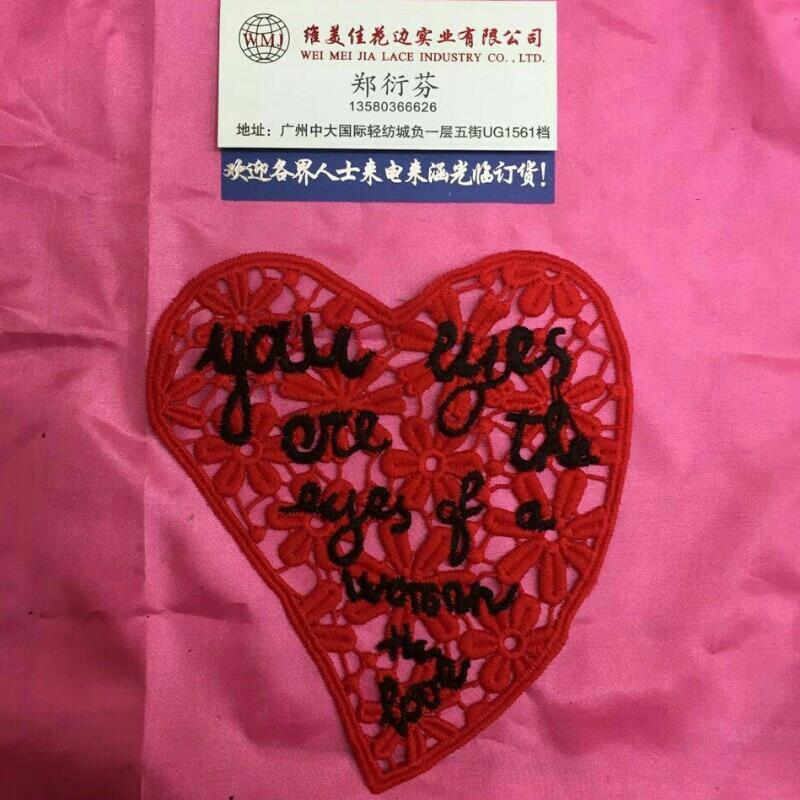 WMJ
维美佳花边实业有限公司
WEI MEI JIA LACE INDUSTRY CO.,LTD.
郑衍芬
13580366626
地址：广州中大国际轻纺城负一层五街UG1561档
欢迎各界人士来电来涵光临订货！
your eyes
are the
eyes of a
woman